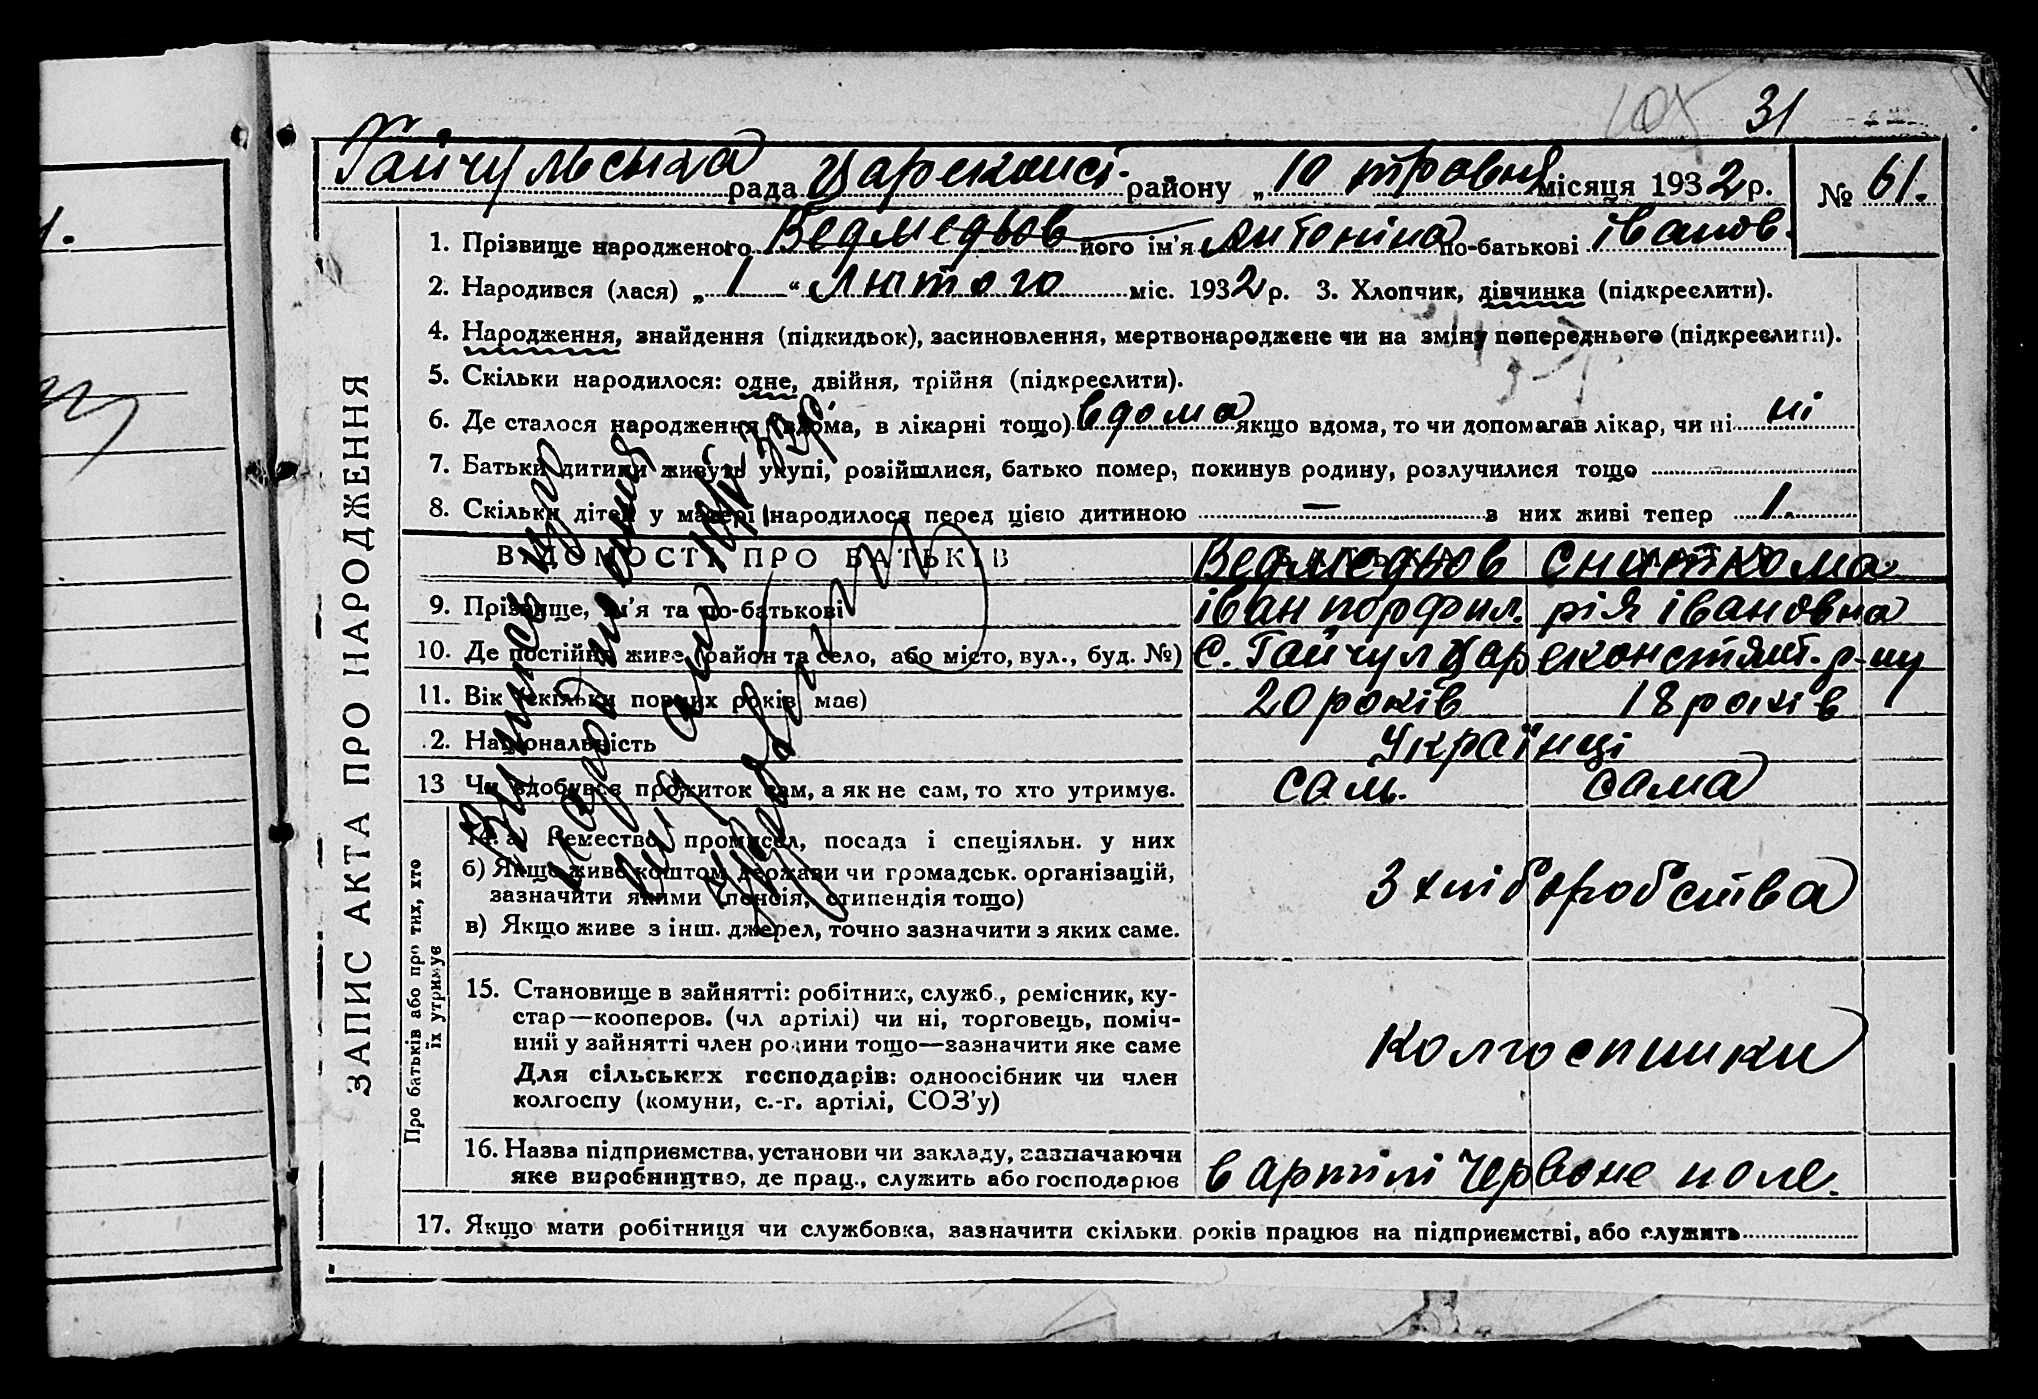 31
Гайчульська рада Царекансі. району „ 10 травня місяця 1932 р. № 61.
ЗАПИС АКТА ПРО НАРОДЖЕННЯ
1. Прізвище народженого Ведмедьов його ім'я Антоніна по-батькові Іванов.
2. Народився (лася) „ 1 “ лютого міс. 1932 р. 3. Хлопчик, дівчинка (підкреслити).
4. Народження, знайдення (підкидьок), засиновлення, мертвонароджене чи на зміну попереднього (підкреслити).
5. Скільки народилося: одне, двійня, трійня (підкреслити).
6. Де сталося народження (вдома, в лікарні тощо) вдома якщо вдома, то чи допомагав лікар, чи ні ні
7. Батьки дитини живуть укупі, розійшлися, батько помер, покинув родину, розлучилися тощо
8. Скільки дітей у матері народилося перед цією дитиною — з них живі тепер 1.
ВІДОМОСТІ ПРО БАТЬКІВ Ведмедьов
9. Прізвище, ім'я та по-батькові Іван Порфил. рія Івановна
10. Де постійно живе (район та село, або місто, вул., буд. №) С. Гайчул Царекконстянт. р-ну
11. Вік (скільки повних років має) 20 років 18 років
12. Національність Українці
13 Чи здобував прожиток сам, а як не сам, то хто утримує. сам. сама
Про батьків або про тих, хто їх утримує
14. а) Ремество, промисел, посада і спеціяльн. у них
б) Якщо живе коштом держави чи громадськ. організацій,
зазначити якими (пенсія, стипендія тощо) З хліборобства
в) Якщо живе з інш. джерел, точно зазначити з яких саме.
15. Становище в зайнятті: робітник, служб., ремісник, ку-
стар—кооперов. (чл артілі) чи ні, торговець, поміч-
ний у зайнятті член родини тощо—зазначити яке саме
Для сільських господарів: одноосібник чи член
колгоспу (комуни, с.-г. артілі, СОЗ'у) колгоспники
16. Назва підприємства, установи чи закладу, зазначаючи
яке виробництво, де прац., служить або господарює в артілі Червоне поле.
17. Якщо мати робітниця чи службовка, зазначити скільки років працює на підприємстві, або служить